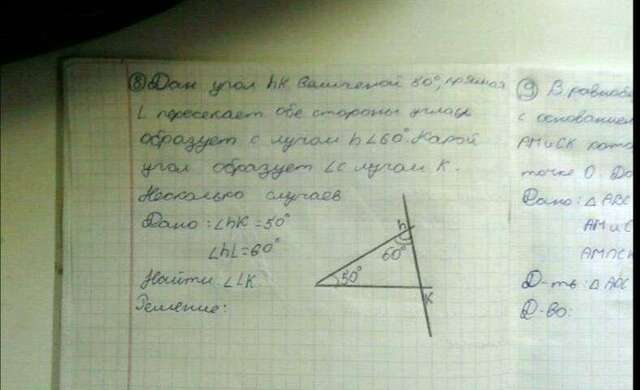 ⑧ Дан угол hK величеной 50°, прямая
L пересекает обе стороны угла и
образует с лучом h ∠60°. Какой
угол образует L с лучом K.
Несколько случаев
Дано: ∠hK = 50°
∠hL = 60°
Найти: ∠LK
Решение:
h
60°
50°
K
⑨ В равнобе
с основанием
AM и CK
точке O. До
Дано: △ABC
AM и C
AM∩CK
Д-ть: △
Д-во: